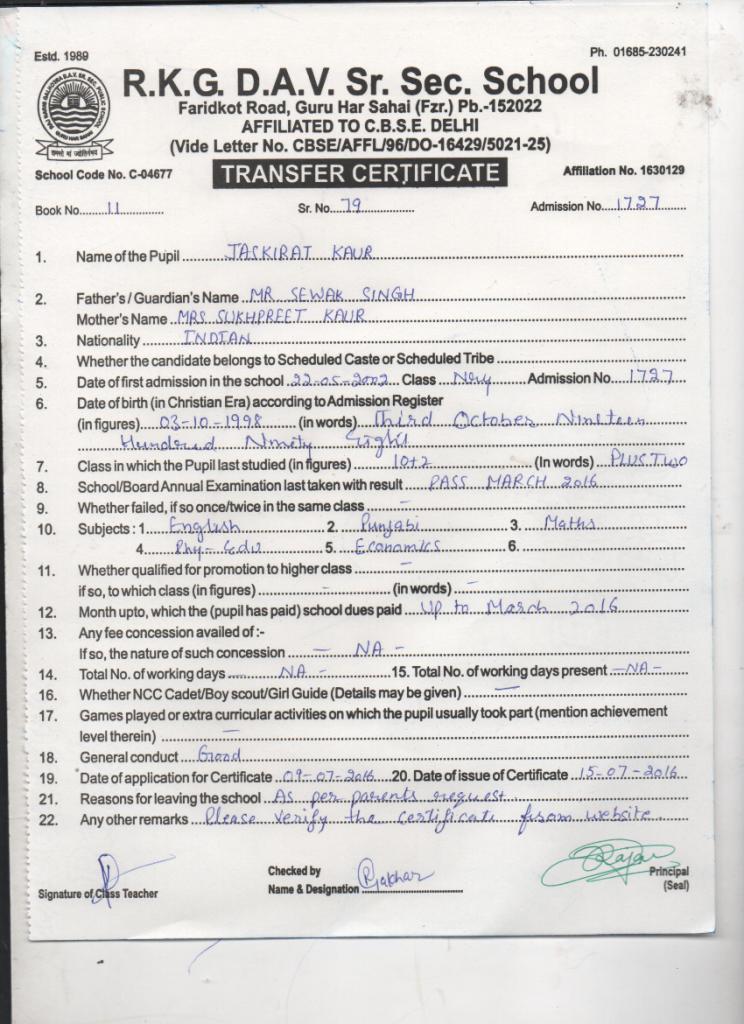 Estd. 1989
Ph. 01685-230241
R.K.G. D.A.V. Sr. Sec. School
Faridkot Road, Guru Har Sahai (Fzr.) Pb.-152022
AFFILIATED TO C.B.S.E. DELHI
(Vide Letter No. CBSE/AFFL/96/DO-16429/5021-25)
School Code No. C-04677 TRANSFER CERTIFICATE Affiliation No. 1630129
Book No. 11 Sr. No. 79 Admission No. 1727
1. Name of the Pupil JASKIRAT KAUR
2. Father's / Guardian's Name MR SEWAK SINGH
Mother's Name MRS SUKHPREET KAUR
3. Nationality INDIAN
4. Whether the candidate belongs to Scheduled Caste or Scheduled Tribe
5. Date of first admission in the school 22-05-2002 Class Nery Admission No. 1727
6. Date of birth (in Christian Era) according to Admission Register
(in figures) 03-10-1998 (in words) Third October Nineteen
Hundred Ninety Eight
7. Class in which the Pupil last studied (in figures) 10+2 (In words) PLUS TWO
8. School/Board Annual Examination last taken with result PASS MARCH 2016
9. Whether failed, if so once/twice in the same class -
10. Subjects : 1. English 2. Punjabi 3. Maths
4. Phy-Edu 5. Economics 6.
11. Whether qualified for promotion to higher class -
if so, to which class (in figures) - (in words) -
12. Month upto, which the (pupil has paid) school dues paid Up to March 2016
13. Any fee concession availed of :-
If so, the nature of such concession - NA -
14. Total No. of working days NA - 15. Total No. of working days present -NA-
16. Whether NCC Cadet/Boy scout/Girl Guide (Details may be given) -
17. Games played or extra curricular activities on which the pupil usually took part (mention achievement
level therein) -
18. General conduct Good
19. Date of application for Certificate 09-07-2016 20. Date of issue of Certificate 15-07-2016
21. Reasons for leaving the school As per parents request
22. Any other remarks Please verify the certificate from website.
Signature of Class Teacher
Checked by
Name & Designation
Principal
(Seal)